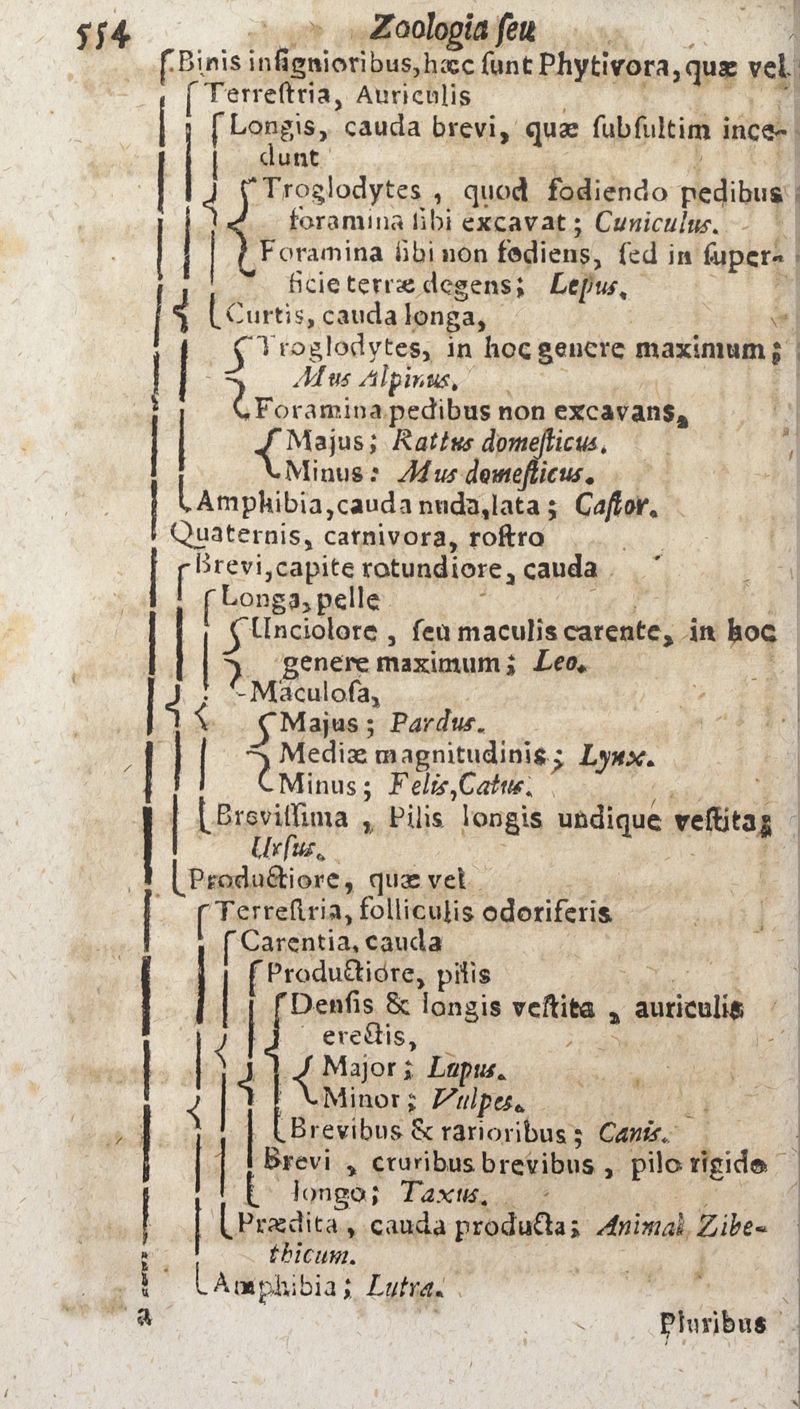 554 Zoologia ſeu
Binis inſignioribus, hæc ſunt Phytivora, quæ vel
Terreſtria, Auriculis
Longis, cauda brevi, quæ ſubſultim ince-
dunt
Troglodytes , quod fodiendo pedibus
foramina ſibi excavat ; Cuniculus.
Foramina ſibi non fodiens, ſed in ſuper-
ficie terræ degens; Lepus.
Curtis, cauda longa,
Troglodytes, in hoc genere maximum ;
Mus Alpinus.
Foramina pedibus non excavans,
Majus ; Rattus domeſticus.
Minus : Mus domeſticus.
Amphibia, cauda nuda, lata ; Caſtor.
Quaternis, carnivora, roſtro
Brevi, capite rotundiore, cauda
Longa, pelle
Unciolore , ſeu maculis carente, in hoc
genere maximum ; Leo.
Maculoſa,
Majus ; Pardus.
Mediæ magnitudinis ; Lynx.
Minus ; Felis, Catus.
Breviſſima , Pilis longis undique veſtita;
Urſus.
Productiore, quæ vel
Terreſtria, folliculis odoriferis
Carentia, cauda
Productiore, pilis
Denſis & longis veſtita , auriculis
erectis,
Major ; Lupus.
Minor ; Vulpes.
Brevibus & rarioribus ; Canis.
Brevi , cruribus brevibus , pilo rigido
longo; Taxus.
Prædita , cauda producta; Animal Zibe-
thicum.
Amphibia ; Lutra.
a
Pluribus